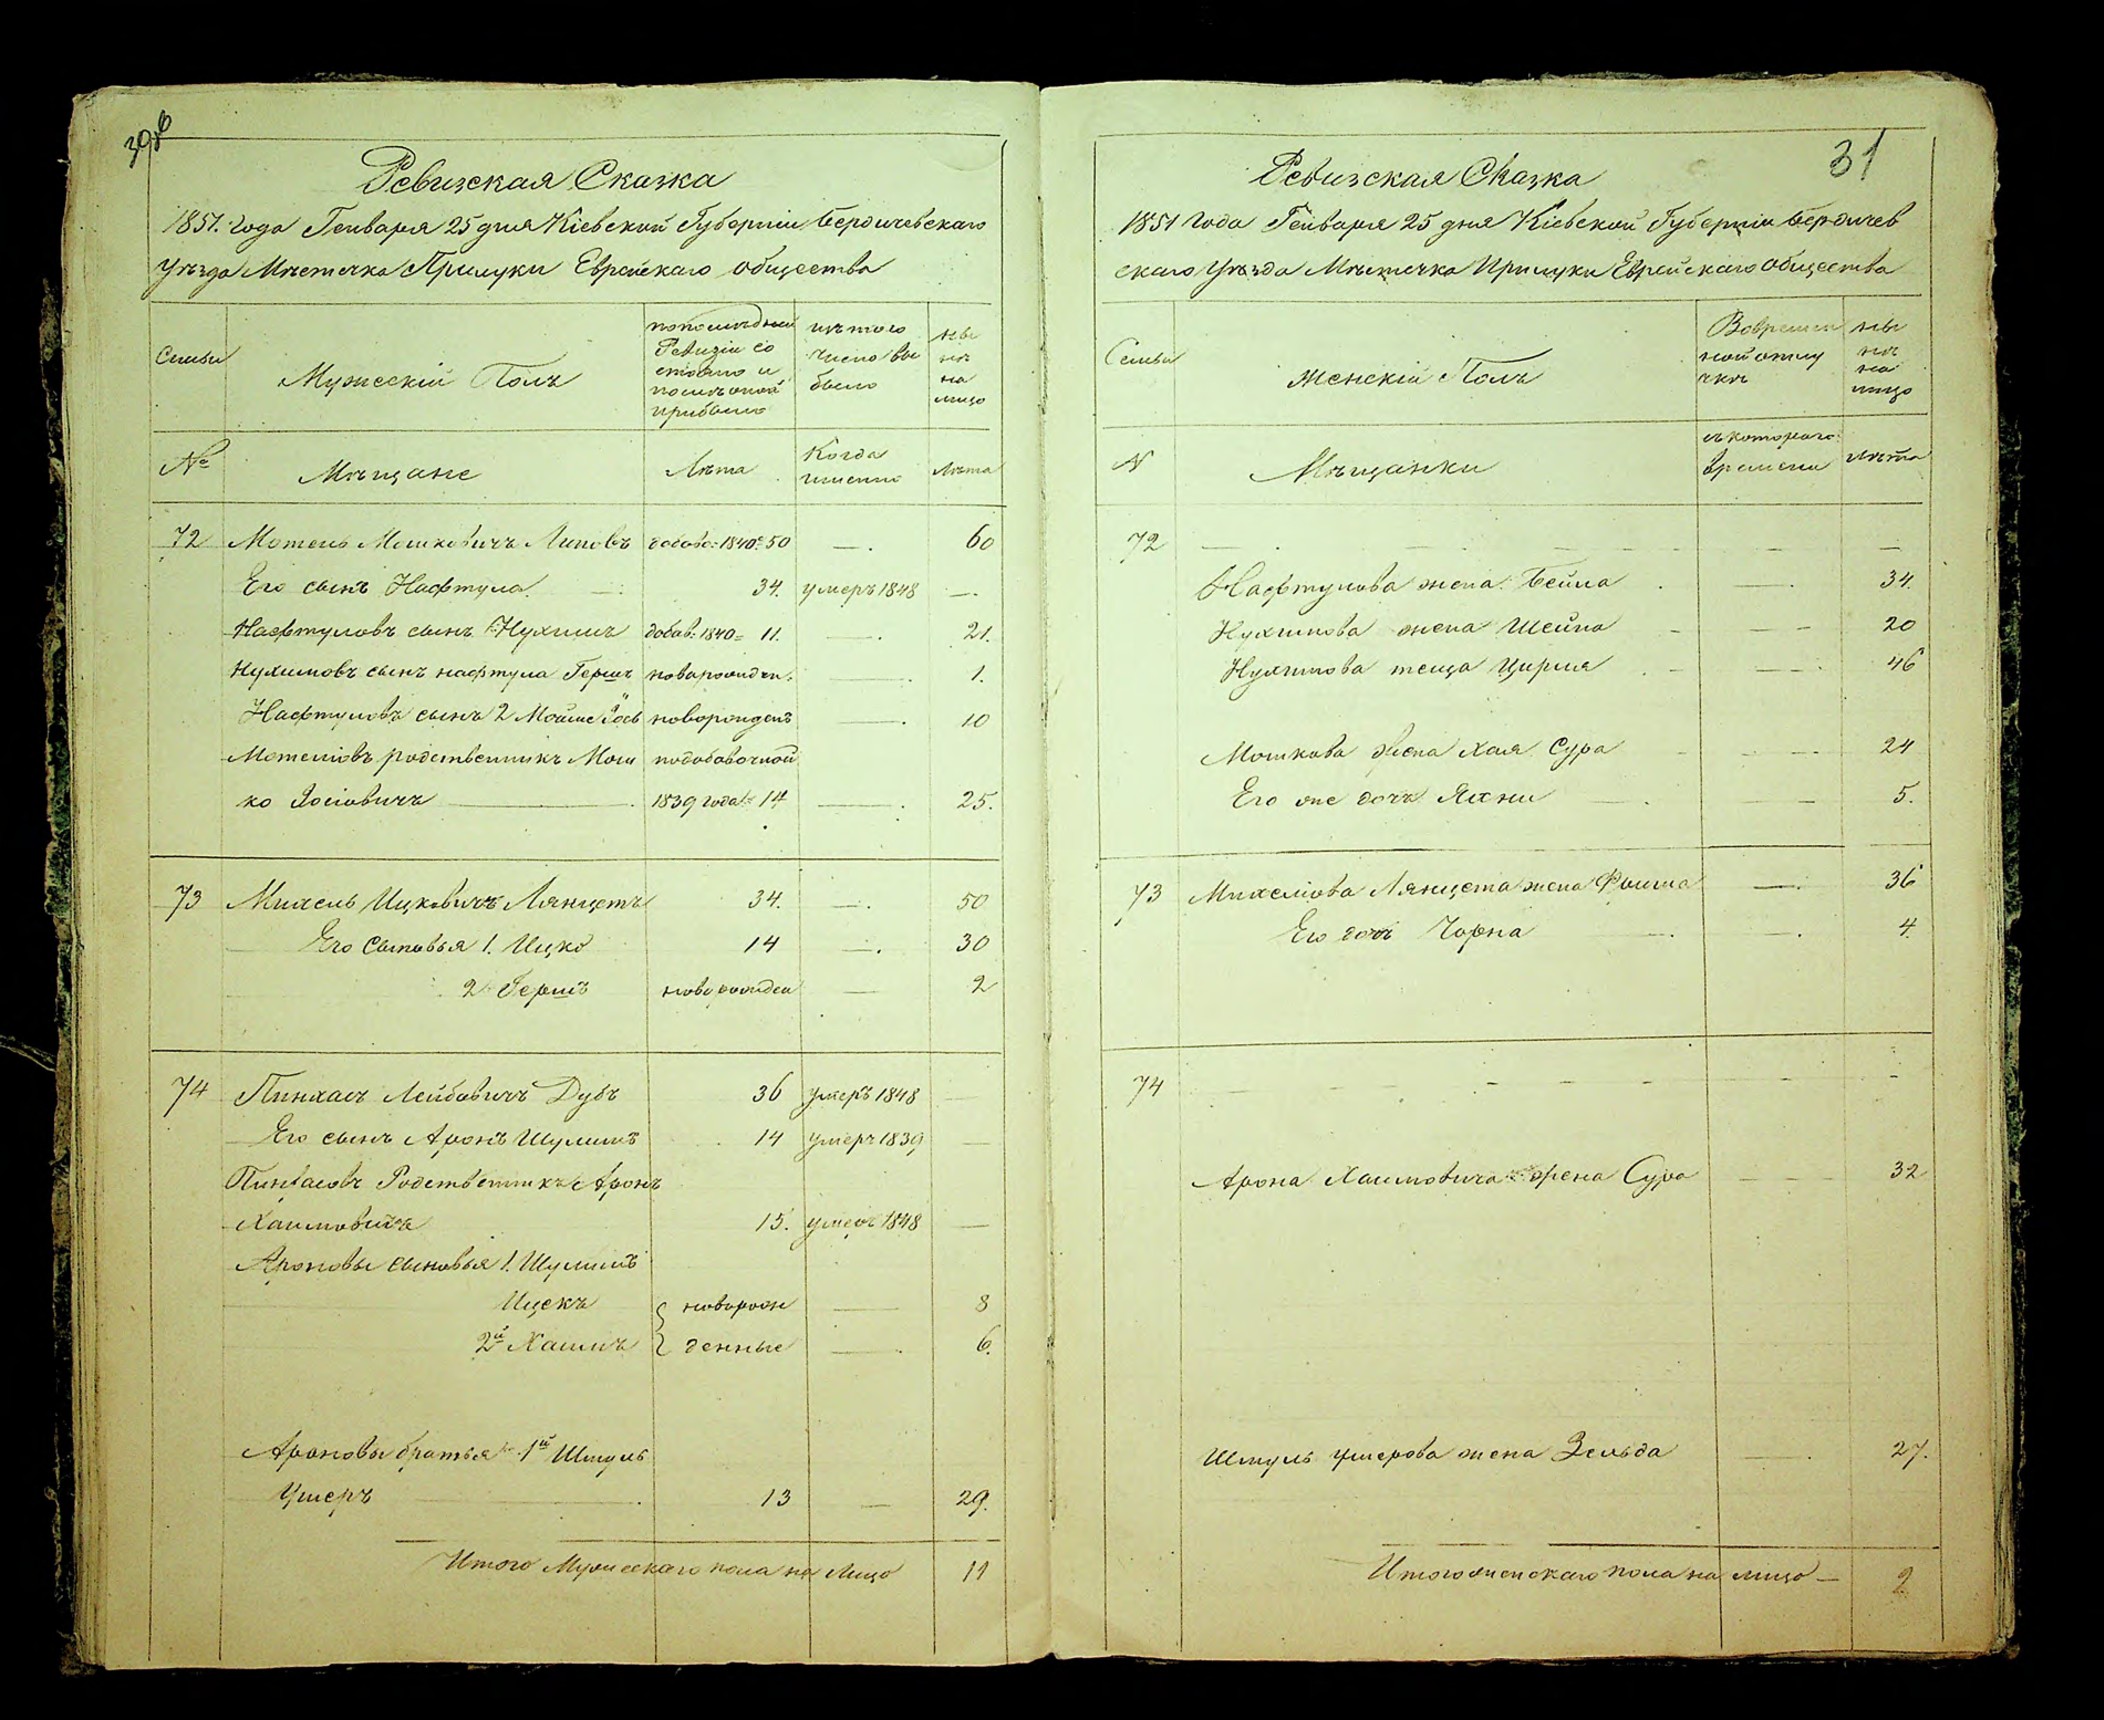 Ревизская Сказка
1851. года Генваря 25 дня Кіевской Губерніи Бердичевскаго
Уѣзда Мѣстечка Прилуки Еврейскаго общества
Семьи
Мужескій Полъ
по послѣдней
Ревизіи со
стояло и
послѣ оной
прибыло
изъ того
число вы
было
ны
нѣ
на
лицо
№
Мѣщане
Лѣта
Когда
именно
Лѣта
72 Мотель Мошковичъ Липовъ добав: 1840 50 — 60
Его сынъ Нафтула 34. умеръ 1848 —
Нафтуловъ сынъ Нухимъ добав: 1840 = 11. — 21.
Нухимовъ сынъ нафтула Гершъ новорожден. — 1.
Нафтуловъ сынъ 2 Мойше Іось новорожденъ — 10
Мотеліовъ родственникъ Мош по добавочной
ко Іосіовичъ 1839 года = 14 — 25.
73 Михель Ицковичъ Лянцетъ 34. — 50
Его сыновья 1. Ицко 14 — 30
2 Гершъ новорожден — 2
74 Пинхасъ Лейбовичъ Дубъ 36 умеръ 1848 —
Его сынъ Аронъ Шулимъ 14 умеръ 1839 —
Пинхасовъ Родственникъ Аронъ
Хаимовичъ 15. умеръ 1848 —
Ароновы сыновья 1. Шулимъ
Ицекъ новорож — 8
2й Хаимъ денные — 6.
Ароновы братья 1й Шмуль
Умеръ 13 — 29.
Итого Мужескаго пола на Лицо 11
31
Ревизская Сказка
1851 года Генваря 25 дня Кіевской Губерніи Бердичев
скаго Уѣзда Мѣстечка Прилуки Еврейскаго общества
Семьи
Женскій Полъ
Во времен
ной отлу
чкѣ
ны
нѣ
на
лицо
N
Мѣщанки
съ котораго
времени
лѣта
72 —
Нафтулова жена Бейла — 34.
Нухимова жена Шейна — 20
Нухимова теща Цирля — 46
Мошкова жена Хая Сура — 24
Его же дочь Яхни — 5.
73 Михеліова Лянцета жена Фрима — 36
Его дочь Чорна — 4.
74 —
Арона Хаимовича жена Сура — 32
Шмуль умерова жена Зельда — 27.
Итого женскаго пола на лицо — 2